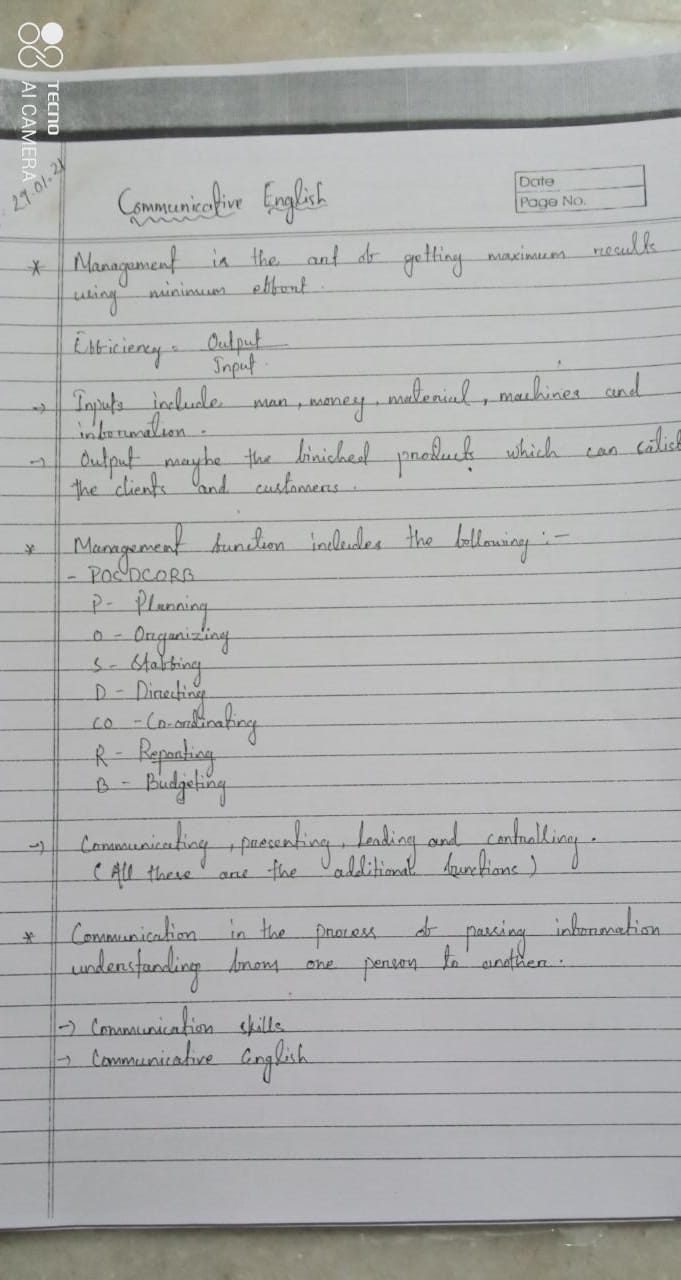 TECNO
AI CAMERA
29.01.21
Communicative English
Date
Page No.
* Management is the art of getting maximum results
using minimum effort.
Efficiency = Output
Input.
→ Inputs include man, money, material, machines and
information.
→ Output maybe the finished products which can satisf
the clients and customers.
* Management function includes the following :-
- POSDCORB
P - Planning
O - Organizing
S - Staffing
D - Directing
CO - Co-ordinating
R - Reporting
B - Budgeting
→ Communicating, presenting, Leading and controlling.
(All these are the additional functions)
* Communication is the process of passing information
understanding from one person to another.
→ Communication skills
→ Communicative English